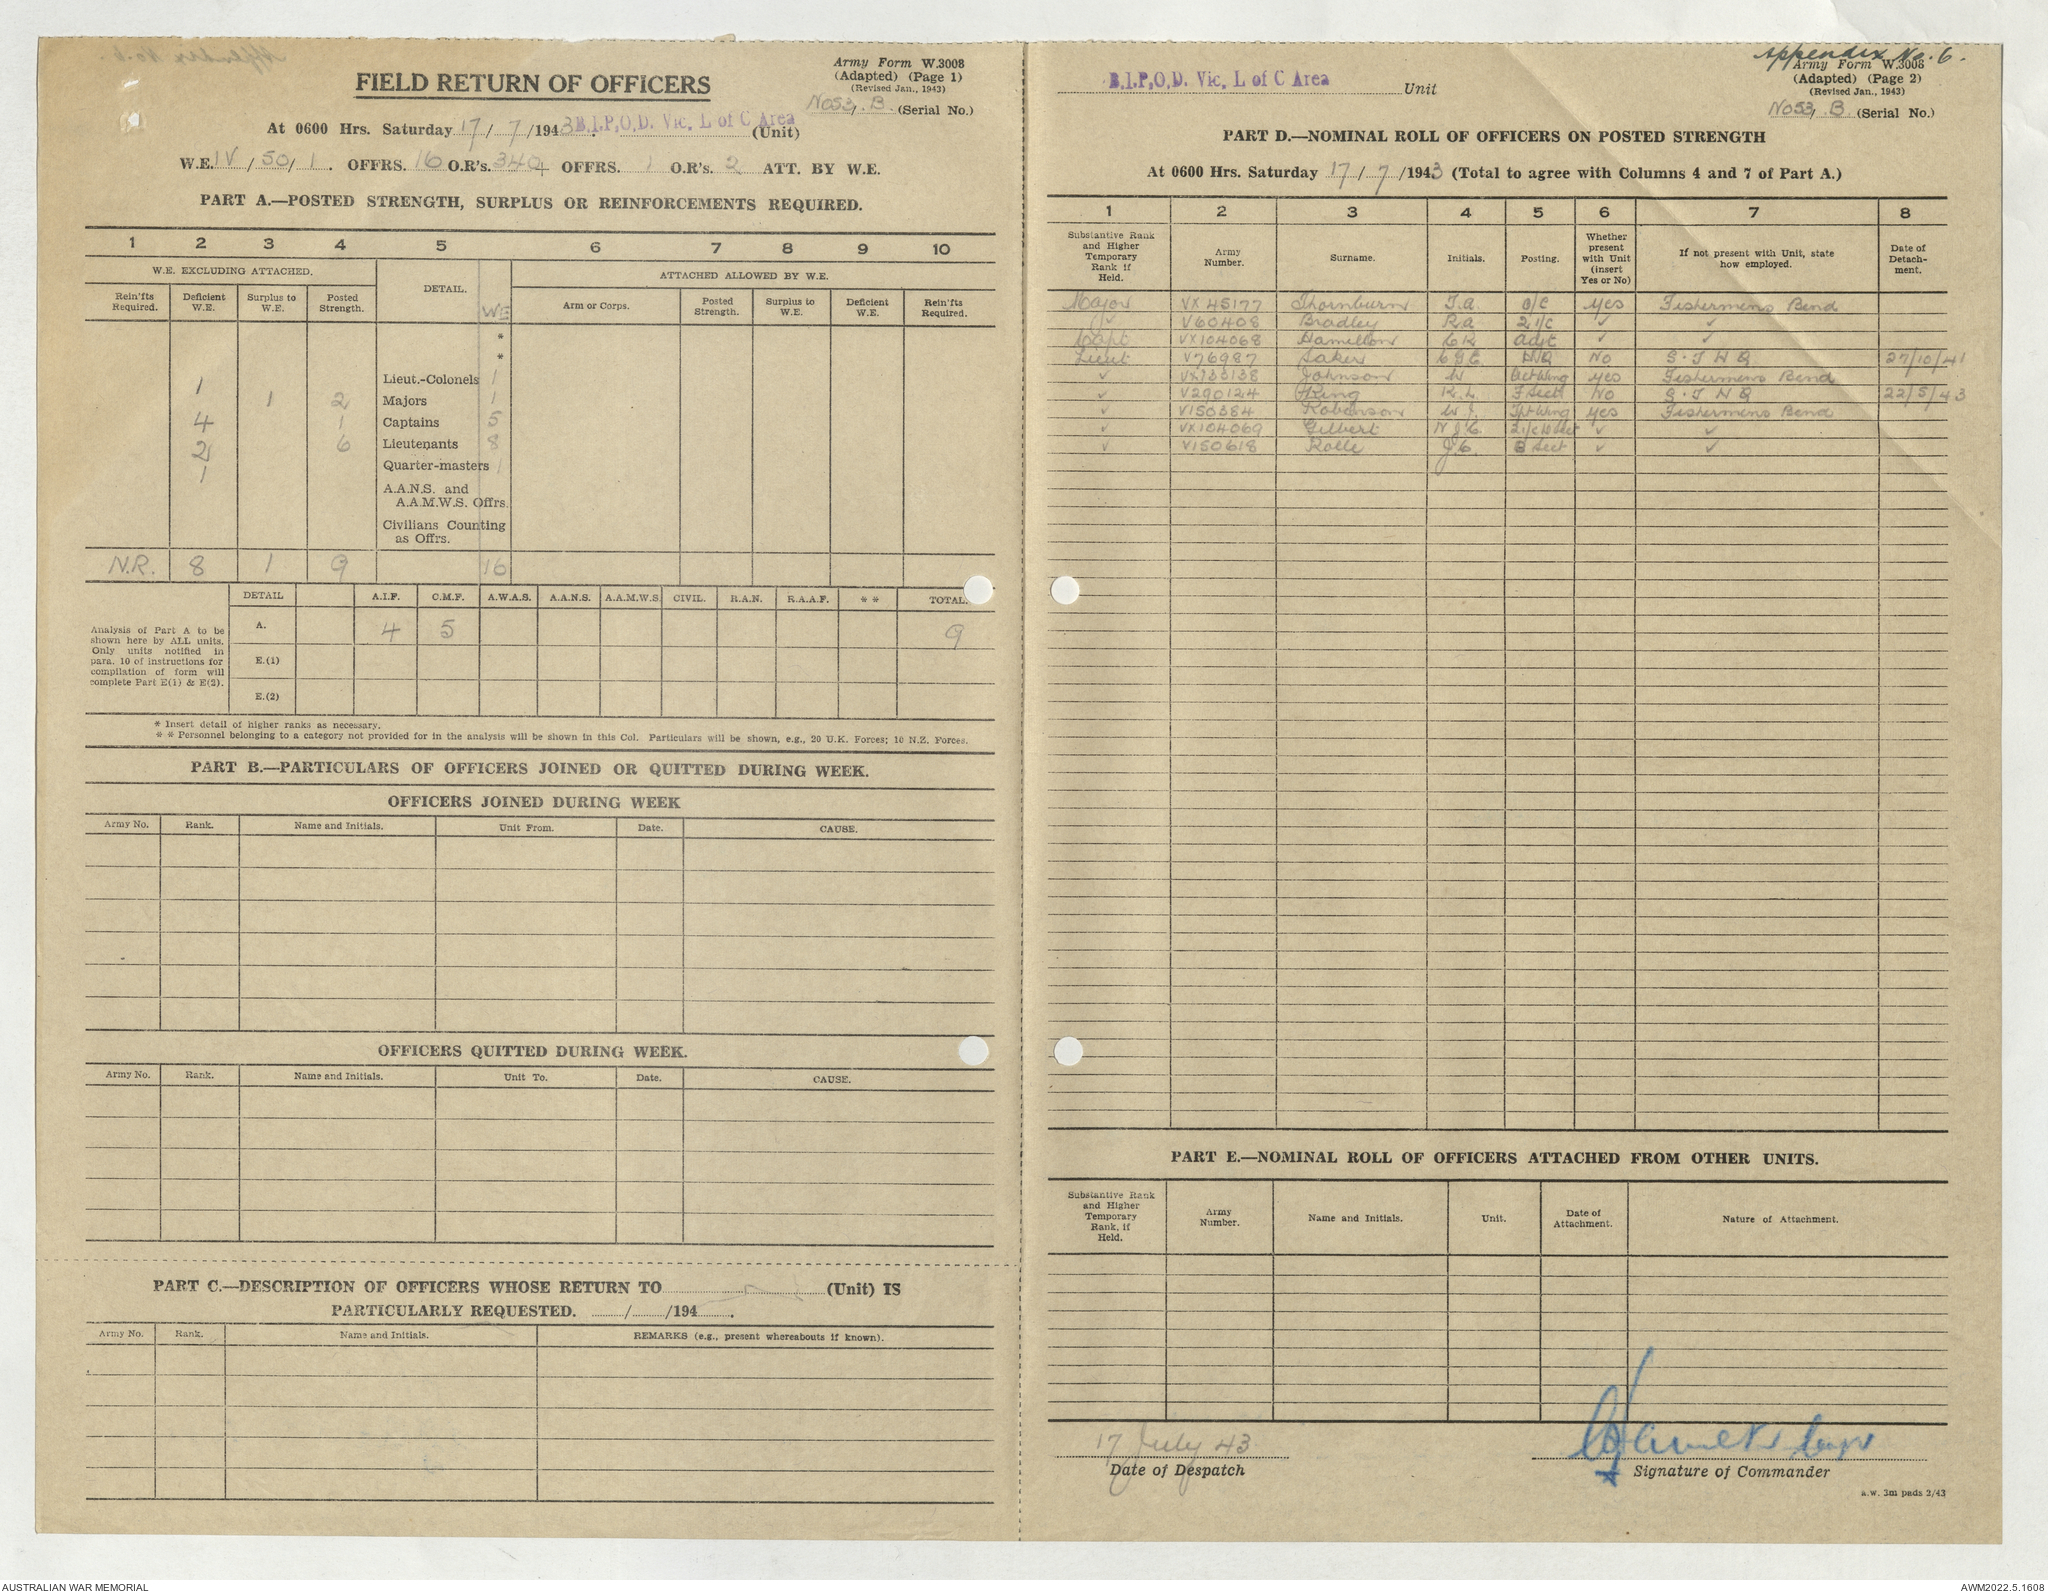 Appendix No. 6.
Army Form W.3008
(Adapted) (Page 1)
(Revised Jan., 1943)
FIELD RETURN OF OFFICERS
No 53, B. (Serial No.)
At 0600 Hrs. Saturday 17/ 7/1943 B.I.P.O.D. Vic. L of C Area (Unit)
W.E. IV/50/1. OFFRS. 16 O.R's. 344 OFFRS. 1 O.R's. 2 ATT. BY W.E.
PART A.—POSTED STRENGTH, SURPLUS OR REINFORCEMENTS REQUIRED.
1 2 3 4 5 6 7 8 9 10
W.E. EXCLUDING ATTACHED. DETAIL. WE ATTACHED ALLOWED BY W.E.
Rein'fts Required. Deficient W.E. Surplus to W.E. Posted Strength. Arm or Corps. Posted Strength. Surplus to W.E. Deficient W.E. Rein'fts Required.
*
*
1 Lieut.-Colonels 1
1 2 Majors 1
4 1 Captains 5
2 6 Lieutenants 8
1 Quarter-masters 1
A.A.N.S. and
A.A.M.W.S. Offrs.
Civilians Counting
as Offrs.
N.R. 8 1 9 16
DETAIL A.I.F. C.M.F. A.W.A.S. A.A.N.S. A.A.M.W.S. CIVIL. R.A.N. R.A.A.F. * * TOTAL.
Analysis of Part A to be
shown here by ALL units.
Only units notified in
para. 10 of instructions for
compilation of form will
complete Part E(1) & E(2).
A. 4 5 9
E.(1)
E.(2)
* Insert detail of higher ranks as necessary.
* * Personnel belonging to a category not provided for in the analysis will be shown in this Col. Particulars will be shown, e.g., 20 U.K. Forces; 10 N.Z. Forces.
PART B.—PARTICULARS OF OFFICERS JOINED OR QUITTED DURING WEEK.
OFFICERS JOINED DURING WEEK
Army No. Rank. Name and Initials. Unit From. Date. CAUSE.
OFFICERS QUITTED DURING WEEK.
Army No. Rank. Name and Initials. Unit To. Date. CAUSE.
PART C.—DESCRIPTION OF OFFICERS WHOSE RETURN TO (Unit) IS
PARTICULARLY REQUESTED. / /194
Army No. Rank. Name and Initials. REMARKS (e.g., present whereabouts if known).
Army Form W.3008
(Adapted) (Page 2)
(Revised Jan., 1943)
B.I.P.O.D. Vic. L of C Area Unit
No 53, B. (Serial No.)
PART D.—NOMINAL ROLL OF OFFICERS ON POSTED STRENGTH
At 0600 Hrs. Saturday 17/ 7/1943 (Total to agree with Columns 4 and 7 of Part A.)
1 2 3 4 5 6 7 8
Substantive Rank and Higher Temporary Rank if Held. Army Number. Surname. Initials. Posting. Whether present with Unit (insert Yes or No) If not present with Unit, state how employed. Date of Detach-ment.
Major VX45177 Thornburn T.A. O/C Yes Fishermens Bend
✓ V60408 Bradley R.A. 2 i/c ✓ ✓
Capt VX104068 Hamilton C R Adjt ✓ ✓
Lieut V76987 Saker C.G.E. H.Q No S.T H Q 27/10/41
✓ VX133138 Johnson W Act Wing Yes Fishermens Bend
✓ V290124 King K.L. F Sect No S.T H Q 22/5/43
✓ V150384 Robinson W.J. Tpt Wing Yes Fishermens Bend
✓ VX104069 Gilbert N.J.C. 2 i/c Sect ✓ ✓
✓ V150618 Rolle J.C. B Sect ✓ ✓
PART E.—NOMINAL ROLL OF OFFICERS ATTACHED FROM OTHER UNITS.
Substantive Rank and Higher Temporary Rank, if Held. Army Number. Name and Initials. Unit. Date of Attachment. Nature of Attachment.
17 July 43
Date of Despatch
Signature of Commander
a.w. 3m pads 2/43
AUSTRALIAN WAR MEMORIAL
AWM2022.5.1608